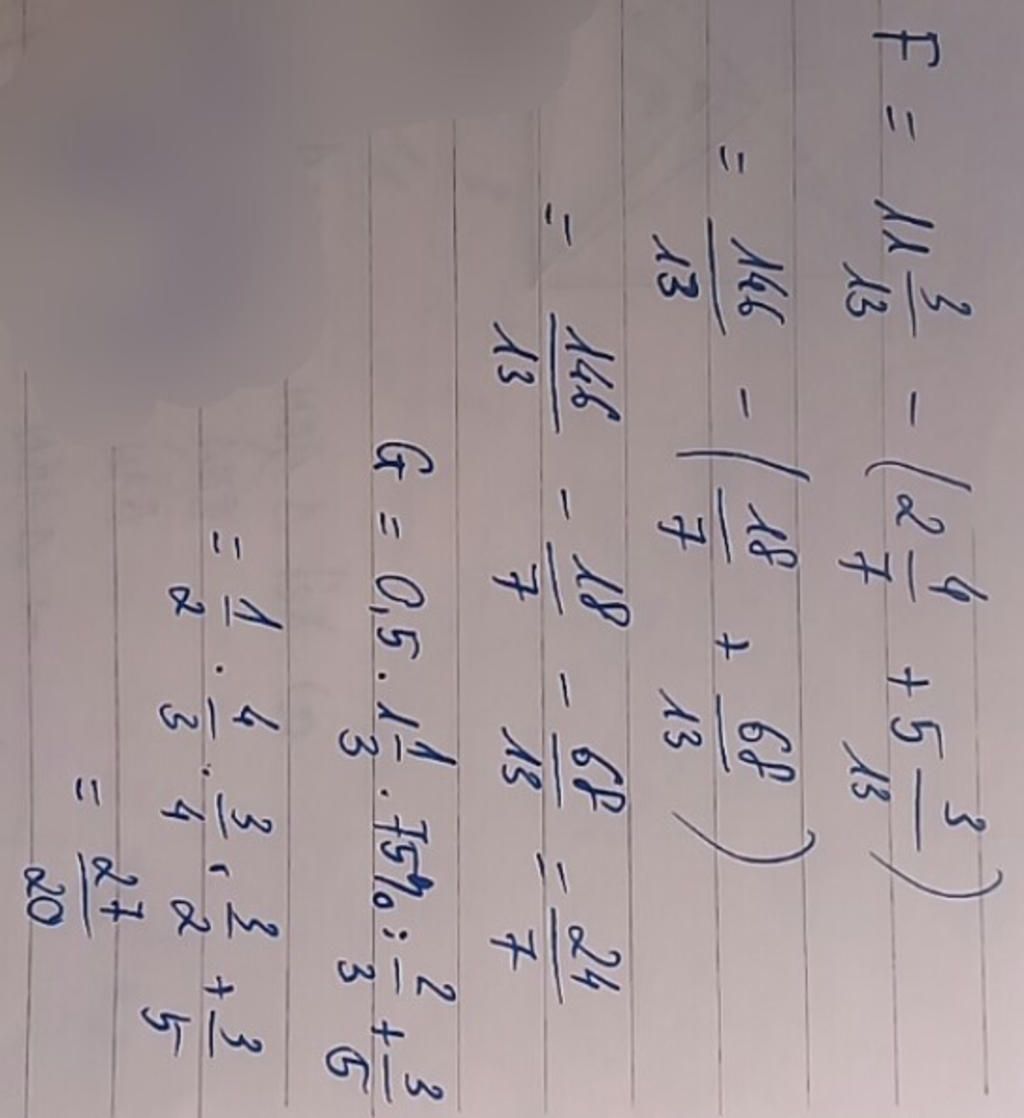 F = 11 3/13 - (2 4/7 + 5 3/13)
= 146/13 - (18/7 + 68/13)
= 146/13 - 18/7 - 68/13 = 24/7
G = 0,5 . 1 1/3 . 75% : 2/3 + 3/5
= 1/2 . 4/3 . 3/4 . 3/2 + 3/5
= 27/20